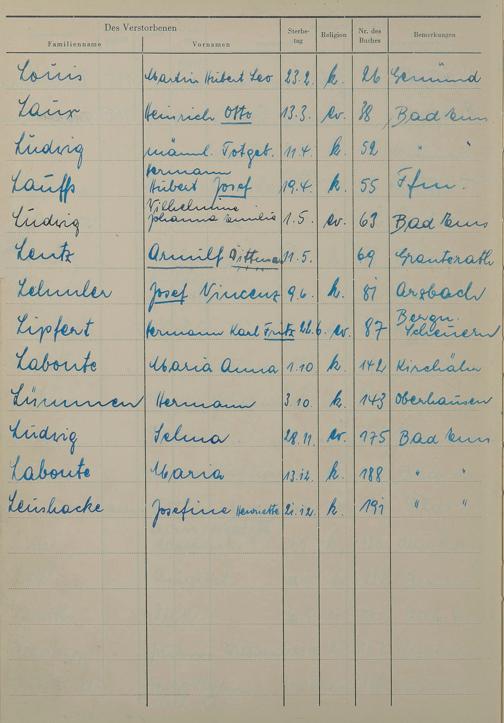 Des Verstorbenen
Familienname Vornamen Sterbe-tag Religion Nr. des Buches Bemerkungen
Louis Martin Hubert Leo 23.2. k. 26 Gemünd
Laux Heinrich Otto 13.3. ev. 38 Bad Ems
Ludwig männl. Totgeb. 11.4. k. 52 " "
Lauffs Hermann Hubert Josef 19.4. k. 55 Ffm.
Ludwig Wilhelmine Johanna Emilie 1.5. ev. 63 Bad Ems
Lentz Arnulf Dittmar 11.5. 69 Granterath
Lehmler Josef Vincenz 9.6. k. 81 Arzbach
Lipfert Hermann Karl Fritz 22.6. ev. 87 Bergn. Scheuern
Labonte Maria Anna 1.10 k. 142 Kirchähr
Lümmen Hermann 3.10 k. 143 Oberhausen
Ludwig Selma 28.11. ev. 175 Bad Ems
Labonte Maria 13.12. k. 188 " "
Leushacke Josefine Henriette 21.12. k. 191 " "